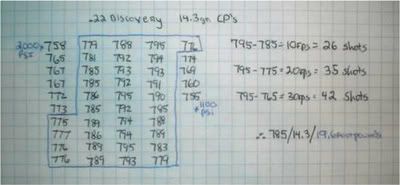 .22 Discovery 14.3gn CP's
2000 PSI
758 779 788 795 776
765 781 792 794 774
767 785 793 793 769
767 785 792 791 760
772 786 795 790 755
773 785 792 785
1100 psi
775 789 794 788
777 786 794 789
776 789 795 783
776 789 793 779
795-785=10FPS = 26 shots
795-775=20FPS = 35 shots
795-765=30FPS = 42 shots
∴ 785/14.3/19.6footpounds